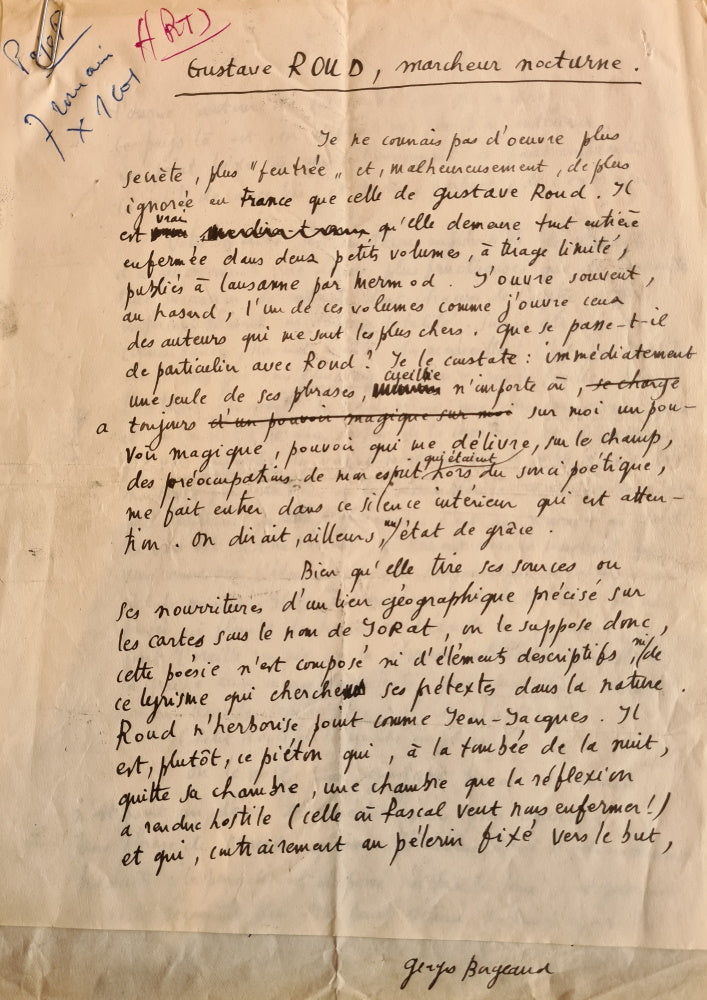 ARTS
7 romain
x 1 col
Gustave ROUD, marcheur nocturne.
Je ne connais pas d'oeuvre plus
secrète, plus "feutrée" et, malheureusement, de plus
ignorée en France que celle de Gustave Roud. Il
est vrai qu'elle demeure tout entière
enfermée dans deux petits volumes, à tirage limité,
publiés à Lausanne par Mermod. J'ouvre souvent,
au hasard, l'un de ces volumes comme j'ouvre ceux
des auteurs qui me sont les plus chers. Que se passe-t-il
de particulier avec Roud? Je le constate : immédiatement
une seule de ses phrases, cueillie n'importe où, se charge
a toujours d'un pouvoir magique sur moi sur moi un pou-
voir magique, pouvoir qui me délivre, sur le champ,
des préoccupations de mon esprit qui étaient hors du souci poétique,
me fait entrer dans ce silence intérieur qui est atten-
tion. On dirait, ailleurs, un état de grâce.
Bien qu'elle tire ses sources ou
ses nourritures d'un lieu géographique précisé sur
les cartes sous le nom de JORAT, on le suppose donc,
cette poésie n'est composé ni d'éléments descriptifs, ni de
ce lyrisme qui cherche ses prétextes dans la nature.
Roud n'herborise point comme Jean-Jacques. Il
est, plutôt, ce piéton qui, à la tombée de la nuit,
quitte sa chambre, une chambre que la réflexion
a rendue hostile (celle où Pascal veut nous enfermer!)
et qui, contrairement au pélerin fixé vers le but,
Georges Borgeaud